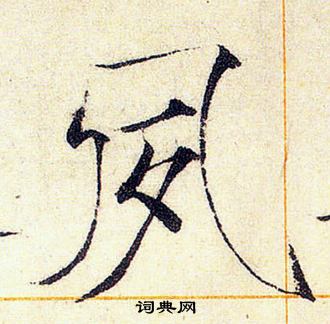 夙
词典网